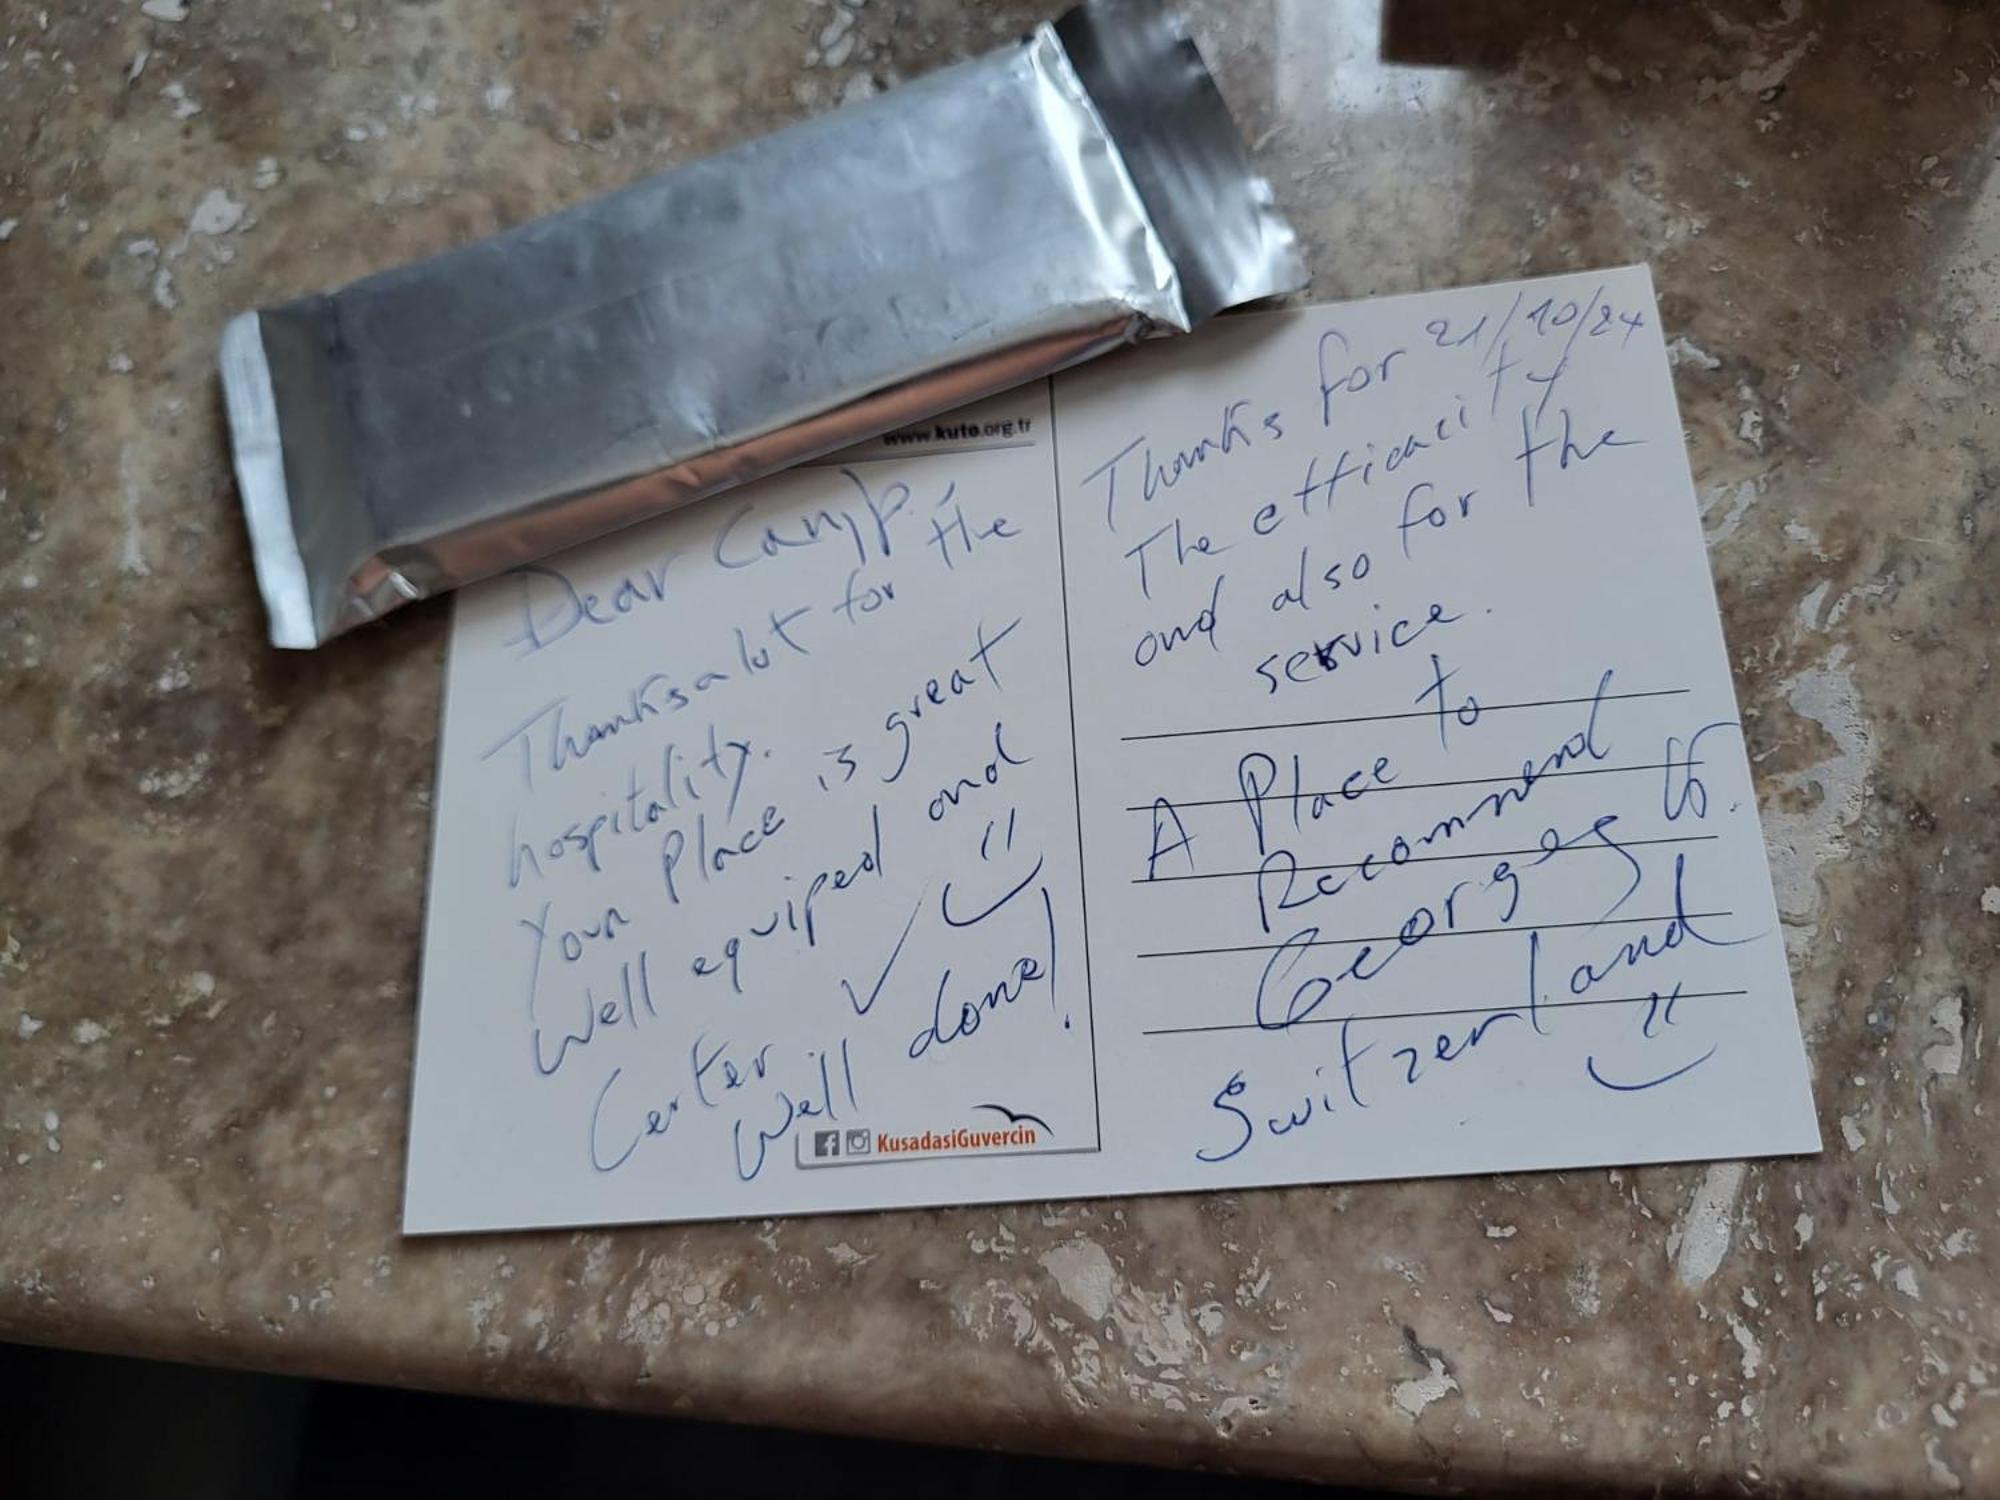 www.kuto.org.tr
Dear Camp.
Thanks a lot for the
hospitality.
Your Place is great
Well equiped and
Center
Well done!
KusadasiGuvercin
21/10/24
Thanks for
The efficacity
and also for the
service.
A Place to
Recommend
Georges
Switzerland